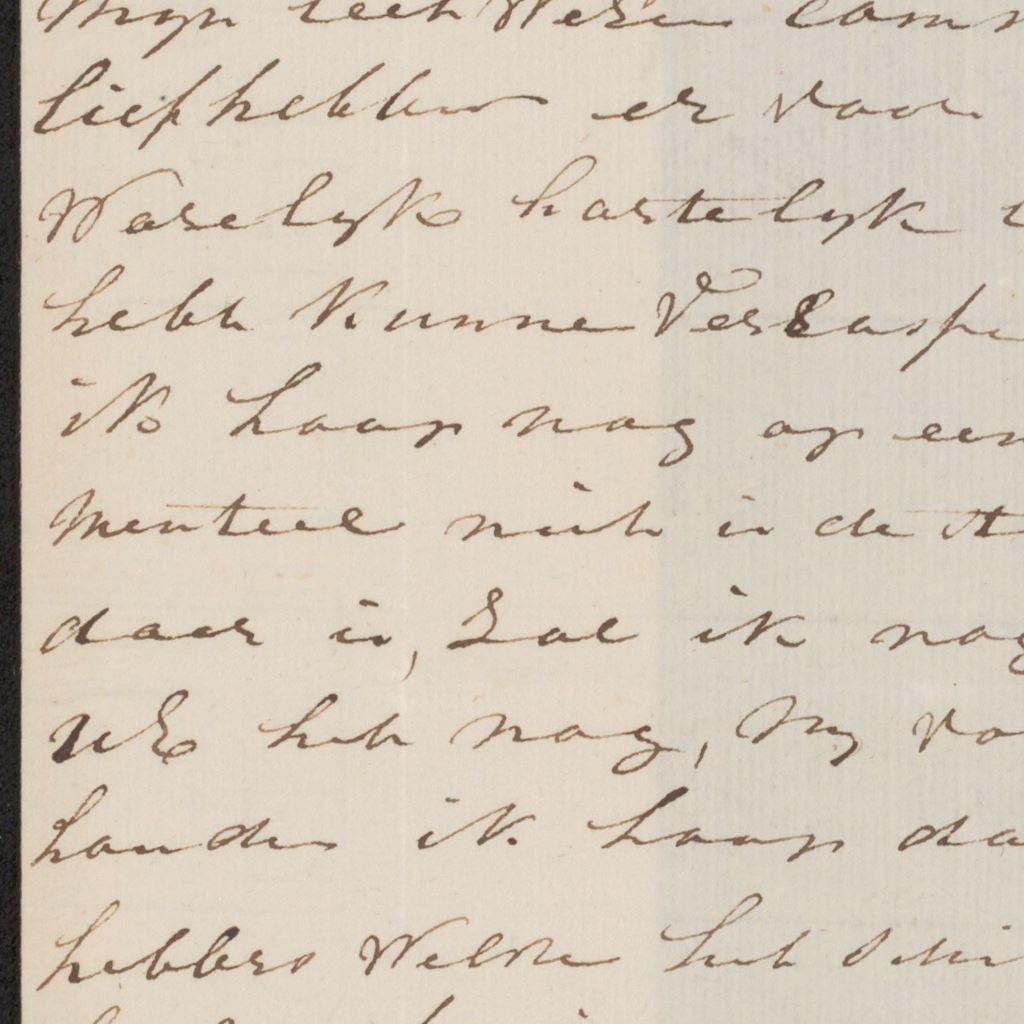 Mijn teek
liefhebber er voor
Waselyk hartelyk
hebt Kunne Ver
ik hoop nog op een
Menteel niet in de
daar is, Zal ik nog
UE het nog, My vo
hande ik hoop da
hebbers Welke het